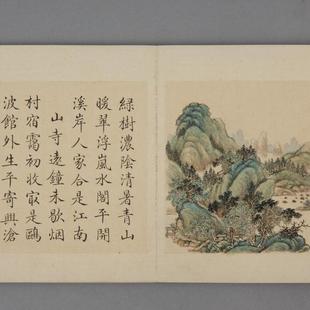 綠樹濃陰清暑青山
暖翠浮嵐水閣平開
溪岸人家合是江南
山寺遠鐘未歇烟
村宿靄初收㝡是鷗
波館外生平寄興滄